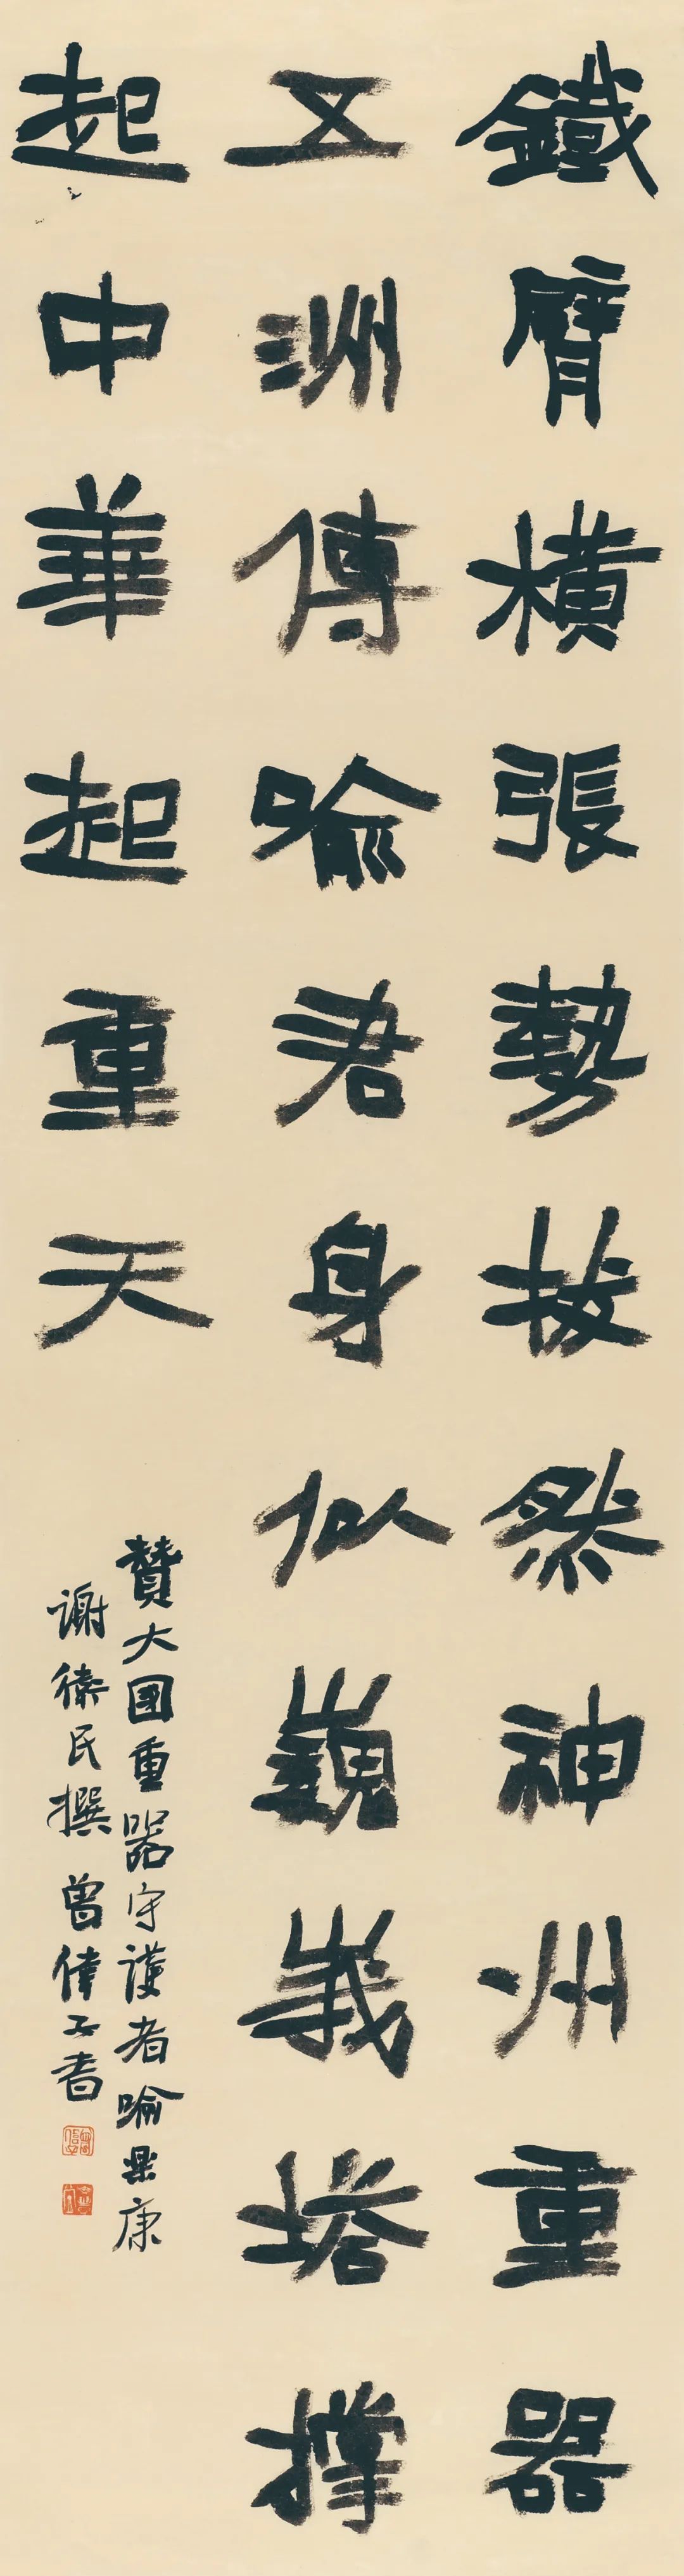 鐵臂橫張勢拔然神州重器
五洲傳喻君身似巍峩塔撐
起中華起重天
贊大国重器守護者喻樂康
谢衛民撰 曾偉子書